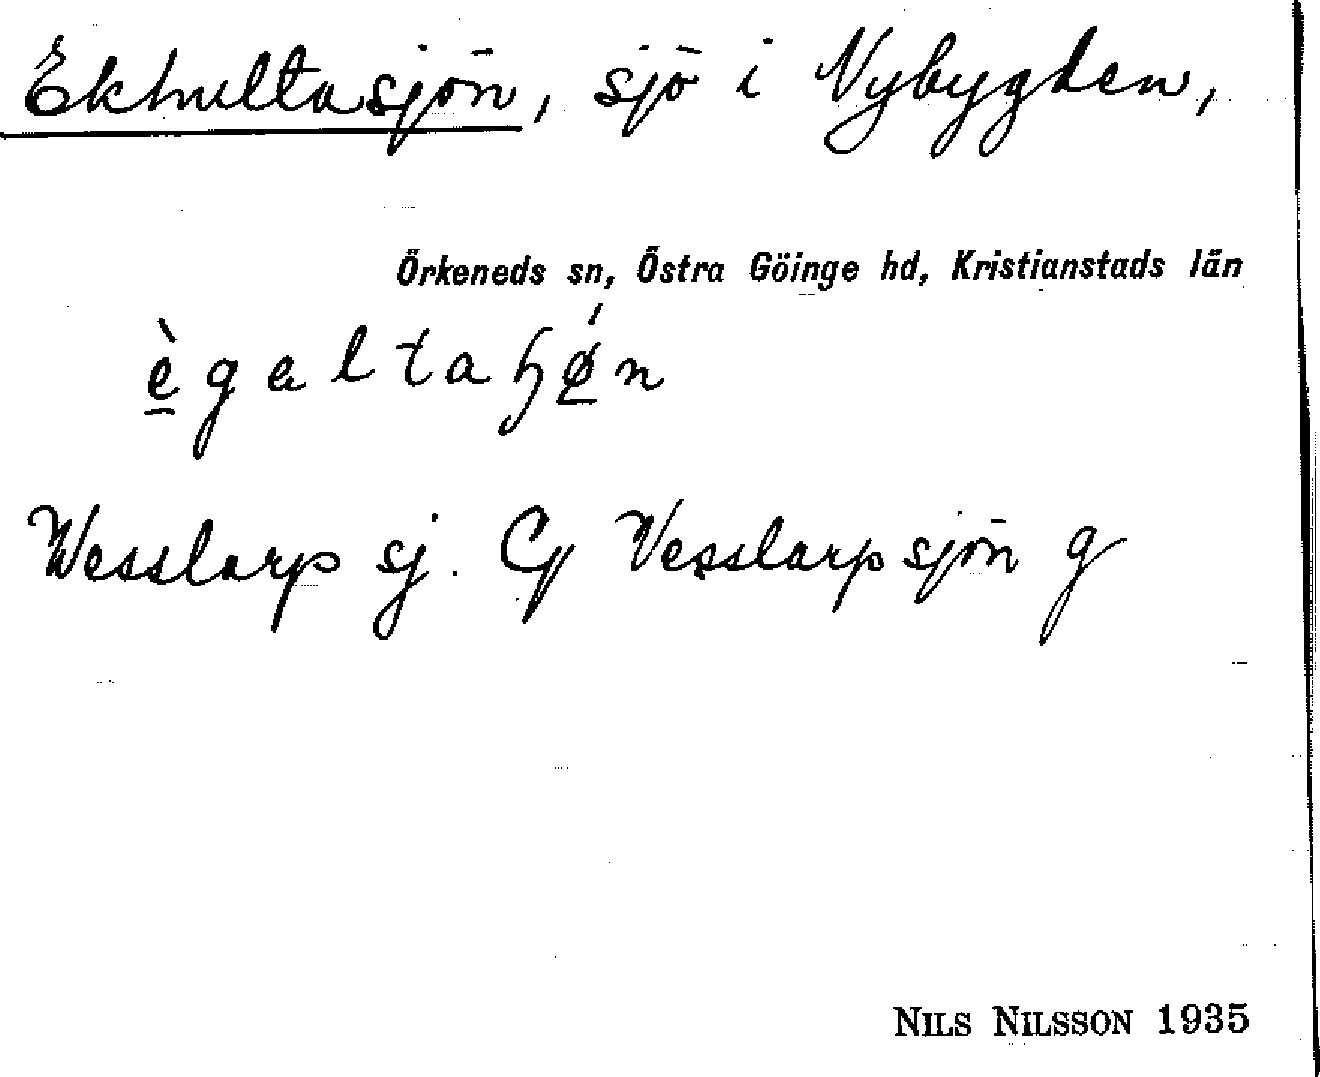 Ekhultasjön, sjö i Nybygden,
Örkeneds sn, Östra Göinge hd, Kristianstads län
ègaltaɧǿn
Wesslarp sj. Cg Vesslarpsjön g
NILS NILSSON 1935